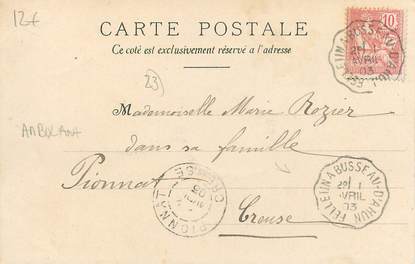 12€
CARTE POSTALE
Ce coté est exclusivement réservé a l'adresse
10
FELLETIN A BUSSEAU-D'AHUN
2º 1
AVRIL
03
23
Mademoiselle Marie Rozier
AMBULANT
dans sa famille
Pionnat
Creuse
PIONNAT
CREUSE
AVRIL
03
FELLETIN A BUSSEAU-D'AHUN
2º 1
AVRIL
03